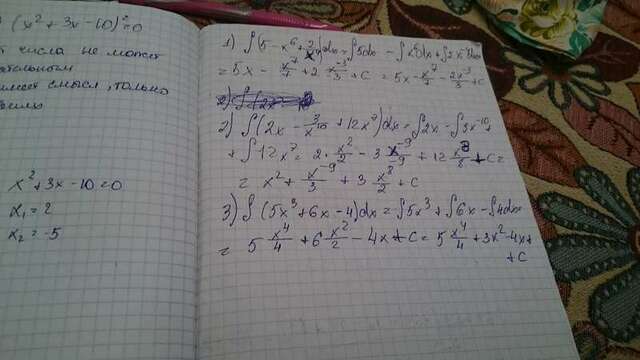 (x² + 3x - 10)² = 0
числа не может
имеет смысл, только
x² + 3x - 10 = 0
x₁ = 2
x₂ = -5
1) ∫(5 - x⁶ +
= 5x - x⁷/7 + 2 x⁻³/-3 + C = 5x - x⁷/7 - 2x⁻³/3 + C
2) ∫(2x - 3/x¹⁰ + 12x⁷)dx = ∫2x - ∫3x⁻¹⁰ +
+ ∫12x⁷ = 2 · x²/2 - 3 x⁻⁹/-9 + 12 x⁸/8 + C =
= x² + x⁻⁹/3 + 3 x⁸/2 + C
3) ∫(5x³ + 6x - 4)dx = ∫5x³ + ∫6x - ∫4dx =
= 5 x⁴/4 + 6 x²/2 - 4x + C = 5 x⁴/4 + 3x² - 4x +
+ C